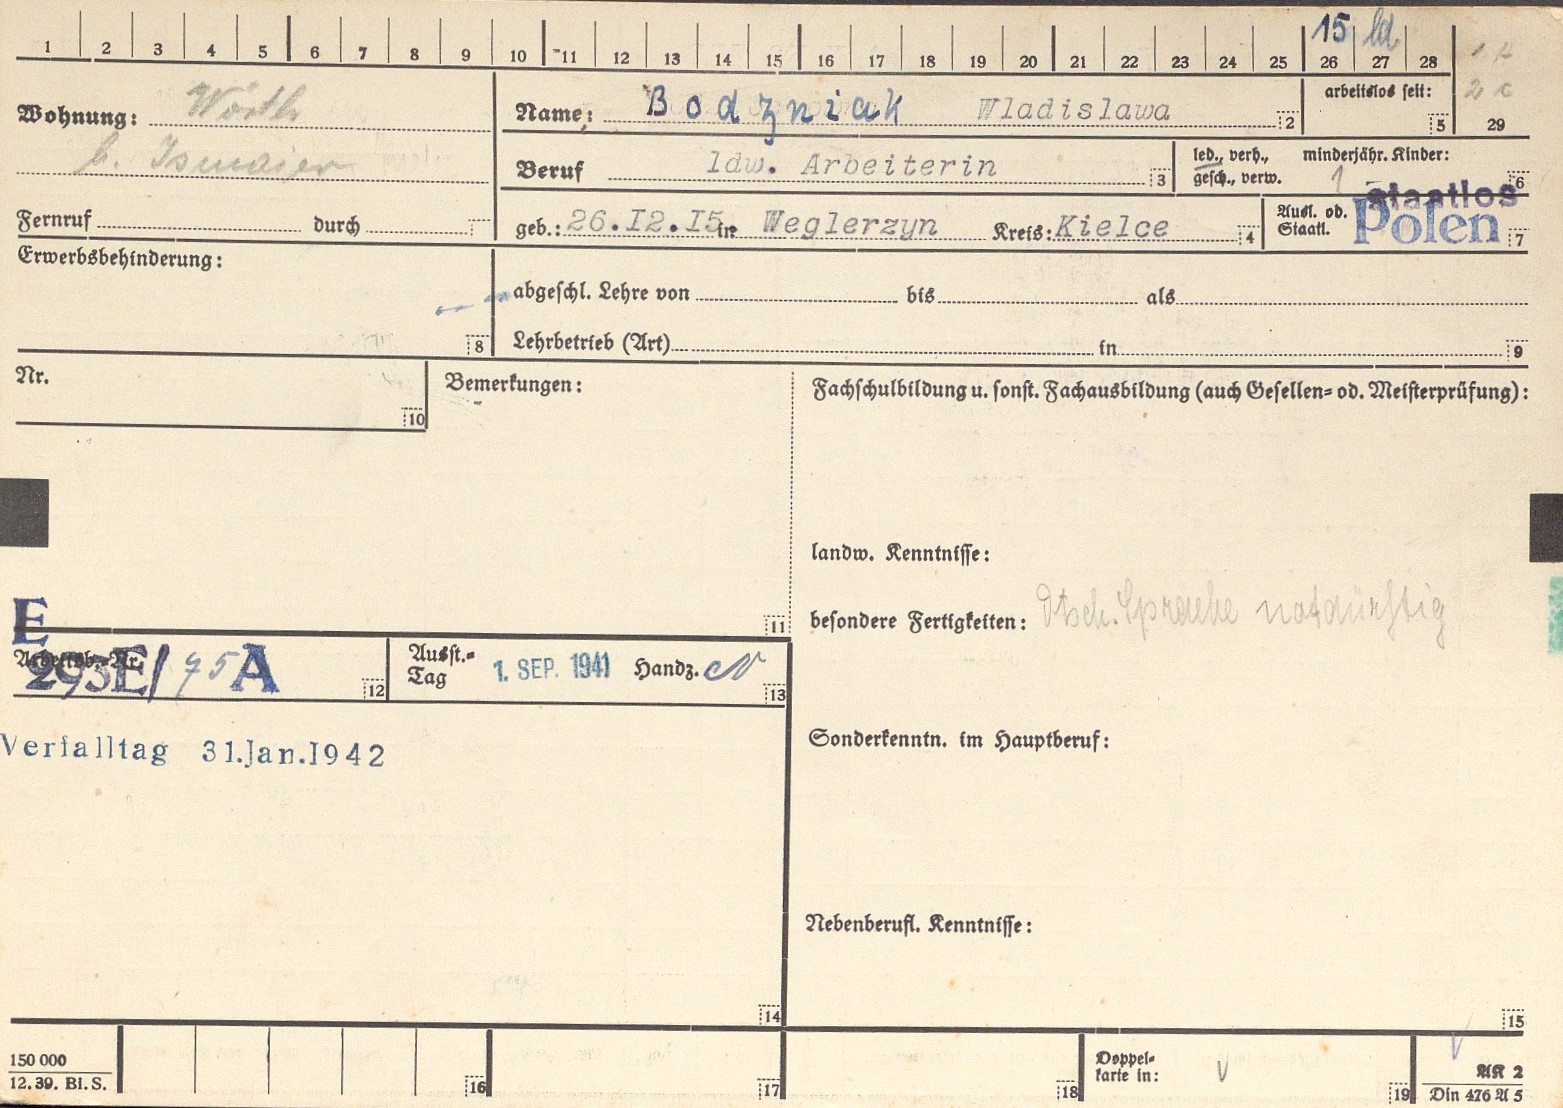 15 ld
1 2 3 4 5 6 7 8 9 10 11 12 13 14 15 16 17 18 19 20 21 22 23 24 25 26 27 28
2 c
29
Wohnung: Wörth
b. Ismaier
Name: Bodzniak Wladislawa 2
arbeitslos seit: 5
Beruf ldw. Arbeiterin 3
led., verh., gesch., verw.
minderjähr. Kinder: 1 6
Fernruf durch
geb.: 26.I2.I5. in Weglerzyn Kreis: Kielce 4
Ausl. od. Staatl. staatlos Polen 7
Erwerbsbehinderung: 8
abgeschl. Lehre von bis als
Lehrbetrieb (Art) in 9
Nr. 10
Bemerkungen: 11
Fachschulbildung u. sonst. Fachausbildung (auch Gesellen= od. Meisterprüfung):
landw. Kenntnisse:
besondere Fertigkeiten: Dtsch. Sprache notdürftig
E
Arbeitsb.-Nr. 293E/75A 12
Ausst.=Tag 1. SEP. 1941 Handz. 13
Verfalltag 31.Jan.I942
Sonderkenntn. im Hauptberuf:
Nebenberufl. Kenntnisse:
14
15
150 000
12. 39. Bl. S.
16
17
18
Doppel=karte in: 19
AK 2
Din 476 A 5